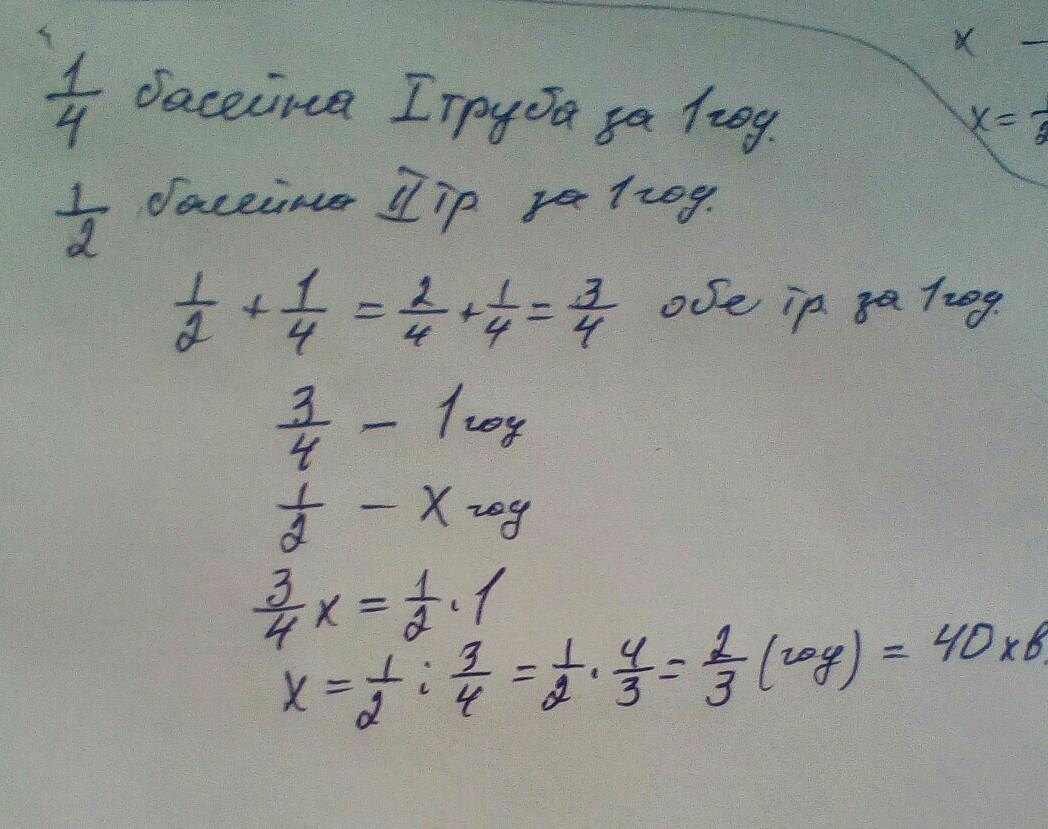 x —
x = 1/2
1/4 басейна I труба за 1 год.
1/2 басейна II тр за 1 год.
1/2 + 1/4 = 2/4 + 1/4 = 3/4 обе тр. за 1 год.
3/4 — 1 год
1/2 — X год
3/4 x = 1/2 · 1
x = 1/2 : 3/4 = 1/2 · 4/3 = 2/3 (год) = 40 хв.